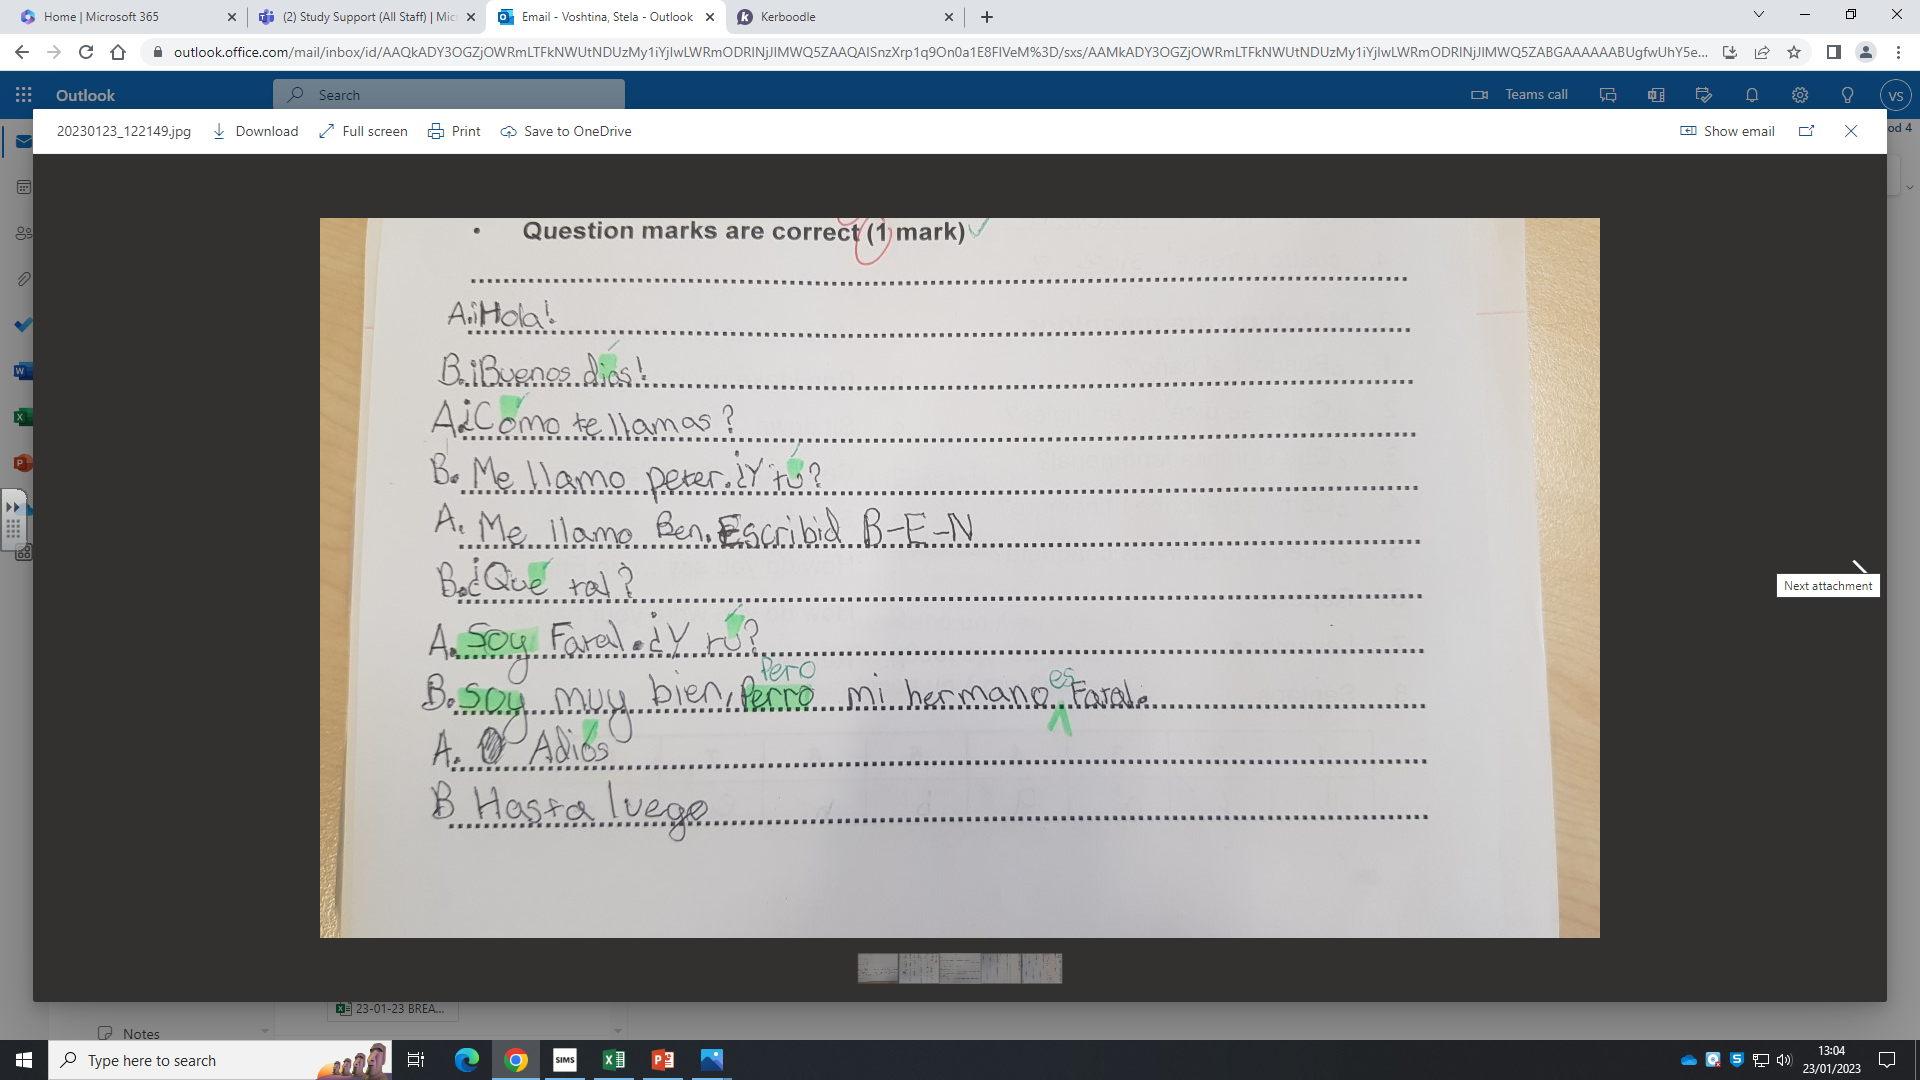 Home | Microsoft 365
(2) Study Support (All Staff) | Mic
Email - Voshtina, Stela - Outlook
Kerboodle
outlook.office.com/mail/inbox/id/AAQkADY3OGZjOWRmLTFkNWUtNDUzMy1iYjIwLWRmODRlNjJlMWQ5ZAAQAISnzXrp1q9On0a1E8FIVeM%3D/sxs/AAMkADY3OGZjOWRmLTFkNWUtNDUzMy1iYjIwLWRmODRlNjJlMWQ5ZABGAAAAAABUgfwUhY5e...
Outlook
Search
Teams call
VS
od 4
20230123_122149.jpg
Download
Full screen
Print
Save to OneDrive
Show email
Question marks are correct (1 mark)
A. ¡Hola!
B. ¡Buenos días!
A. ¿Cómo te llamas?
B. Me llamo peter. ¿Y tú?
A. Me llamo Ben. Escribid B-E-N
B. ¿Qué tal?
A. Soy Faral. ¿Y tú?
Pero
es
B. Soy muy bien, Perro mi hermano Faral.
A. Adiós
B Hasta luego
Next attachment
23-01-23 BREA...
Notes
Type here to search
SIMS
13:04
23/01/2023